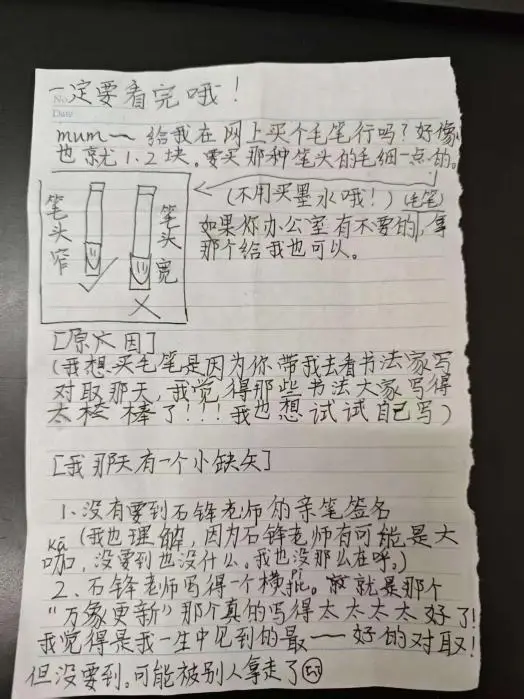 一定要看完哦！
No.
Date
mum～ 给我在网上买个毛笔行吗？好像
也就1.2块。要买那种笔头的毛细一点的。
笔头窄
笔头宽
(不用买墨水哦！)(毛笔)
如果你办公室有不要的，拿
那个给我也可以。
[原因]
(我想买毛笔是因为你带我去看书法家写
对取那天，我觉得那些书法大家写得
太棒棒了！！！我也想试试自己写)
[我那天有一个小缺矢]
1、没有要到石锋老师的亲笔签名
kā
(我也理解，因为石锋老师有可能是大
咖，没要到也没什么。我也没那么在呼。)
2、石锋老师写得一个横批。就是那个
“万象更新”那个真的写得太太太太好了！
我觉得是我一生中见到的最一一好的对取！
但没要到。可能被别人拿走了